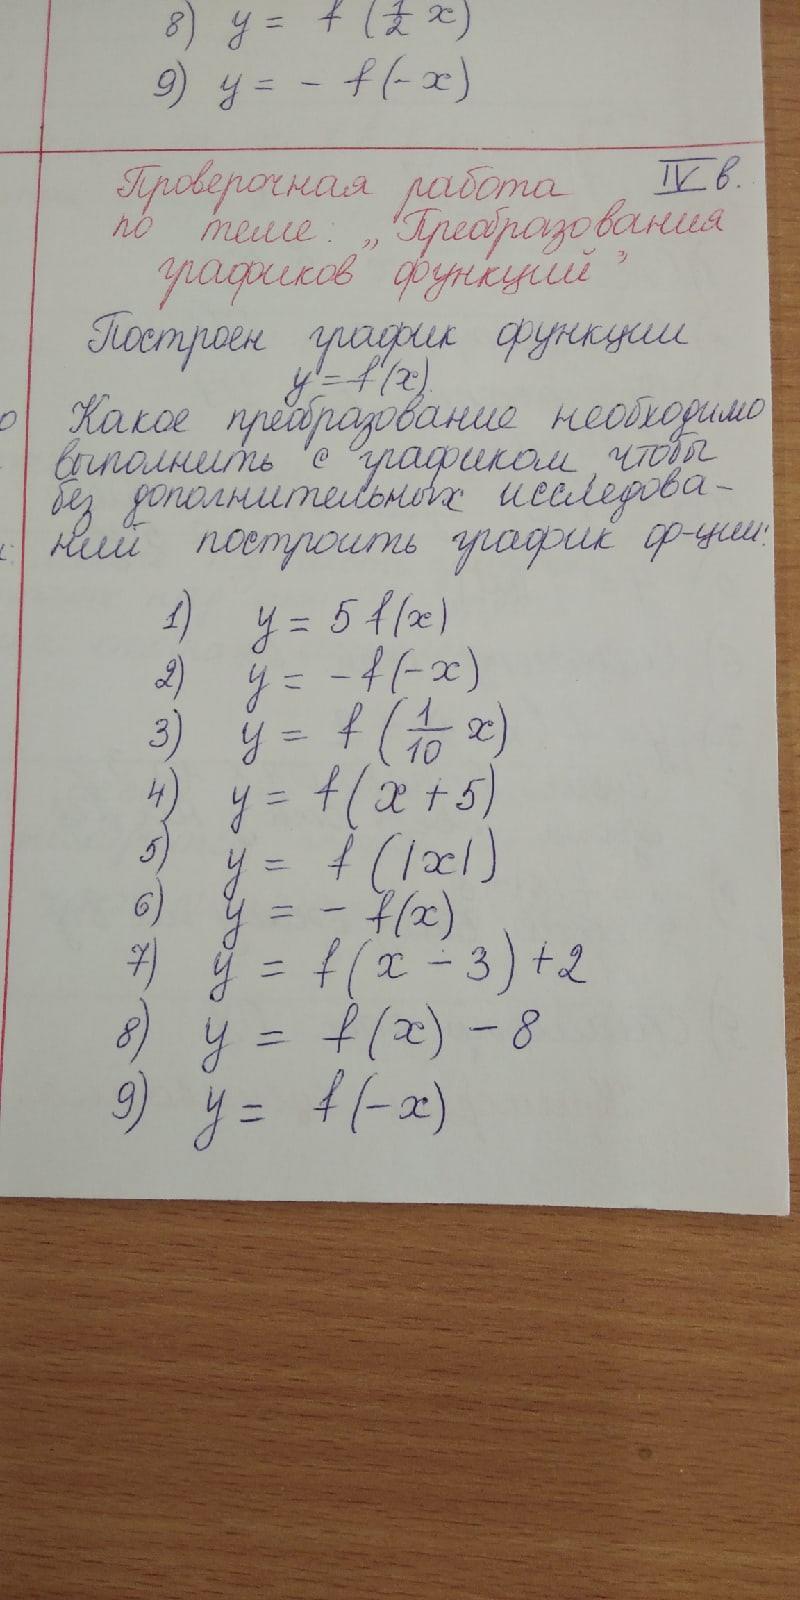 8) y = f(1/2 x)
9) y = - f(-x)
Проверочная работа IV в.
по теме: „Преобразования
графиков функций"
Построен график функции
y=f(x).
Какое преобразование необходимо
выполнить с графиком, чтобы
без дополнительных исследова-
ний построить график ф-ции:
1) y = 5 f(x)
2) y = -f(-x)
3) y = f(1/10 x)
4) y = f(x+5)
5) y = f(|x|)
6) y = - f(x)
7) y = f(x-3)+2
8) y = f(x) - 8
9) y = f(-x)